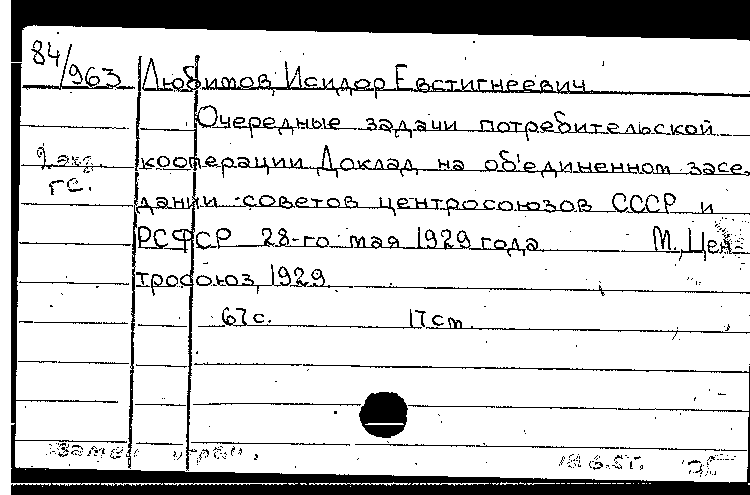 84/963 Любимов, Исидор Евстигнеевич
Очередные задачи потребительской
2 экз. кооперации Доклад на об'единенном засе,
гс. дании советов центросоюзов СССР и
РСФСР 28-го мая 1929 года М., Цен-
тросоюз, 1929
67с. 17см.
замен